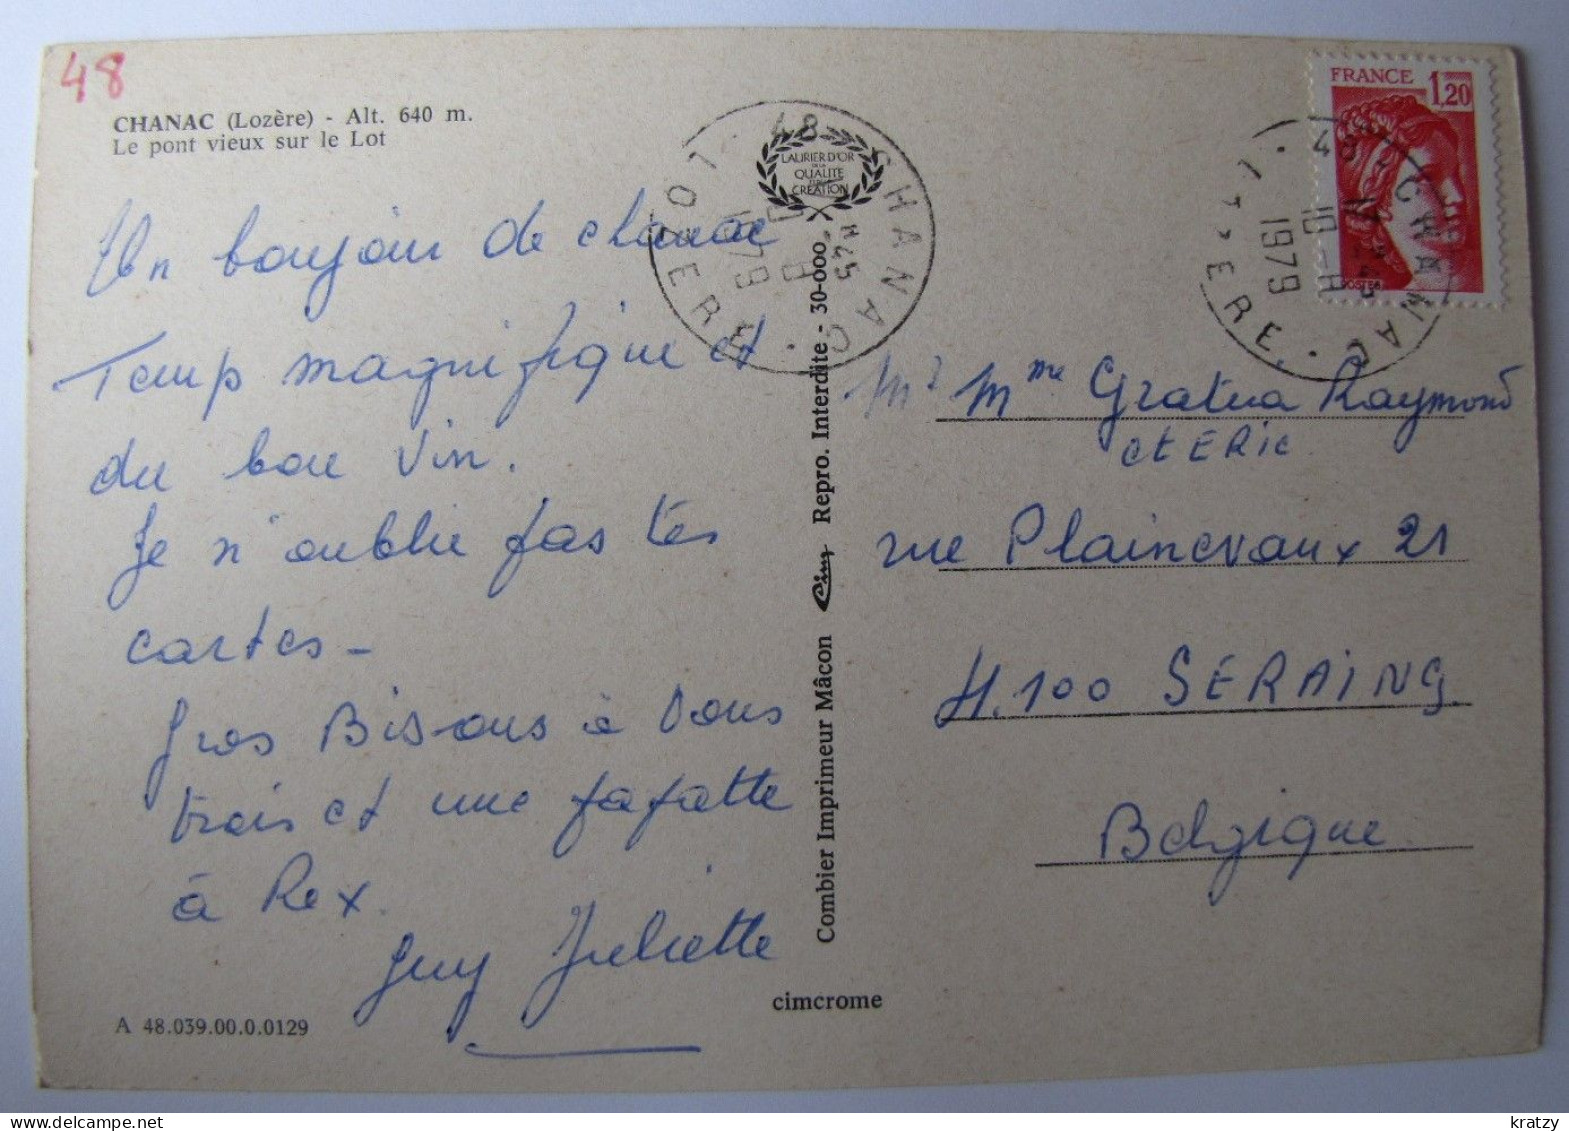 48
CHANAC (Lozère) - Alt. 640 m.
Le pont vieux sur le Lot
Un bonjour de chanac
Temp magnifique et
du bon vin.
Je n'oublie pas tes
cartes -
gros Bisous à vous
trois et une papatte
à Rex.
Guy Juliette
A 48.039.00.0.0129
cimcrome
Combier Imprimeur Mâcon Cim Repro. Interdite - 30-000
LAURIER D'OR
DE LA
QUALITÉ
CRÉATION
48 CHANAC
LOZERE
1979
FRANCE 1,20
POSTES
48 CHANAC
10 - 8
1979
Mr Mme Gratua Raymond
et ERic
rue Plainevaux 21
4.100 SERAING
Belgique
kratzy